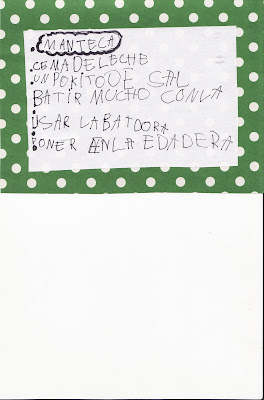 MANTECA
CEMA DE LECHE
UN POKITO DE SAL
BATIR MUCHO CON LA
USAR LA BATDORA
PONER EN LA EDADERA